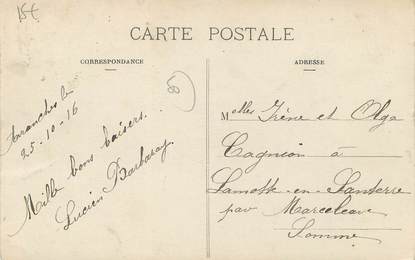 15€
CARTE POSTALE
CORRESPONDANCE
ADRESSE
80
Avranches le
25-10-16
Mille bons baisers.
Lucien Barbaray
Melles Irène et Olga
Cagnion à
Lamotte-en-Santerre
par Marcelcave
Somme